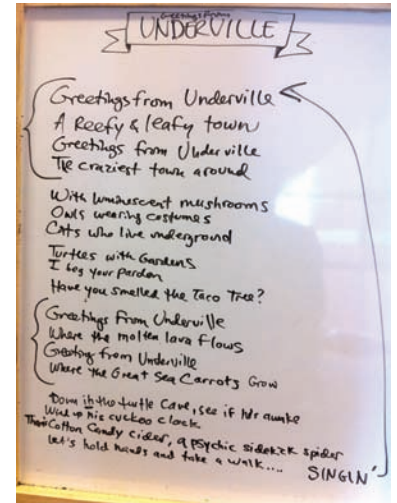 Greetings from
UNDERVILLE
Greetings from Underville
A Reefy & leafy town
Greetings from Underville
The craziest town around
With luminescent mushrooms
Owls wearing costumes
Cats who live underground
Turtles with Gardens
I beg your pardon
Have you smelled the Taco Tree?
Greetings From Underville
Where the molten lava flows
Greeting from Underville
Where the Great Sea Carrots Grow
Down in the turtle Cave, see if he's awake
Wind up his cuckoo clock
Cotton Candy Cider, a psychic sidekick spider
Let's hold hands and take a walk....
SINGIN'